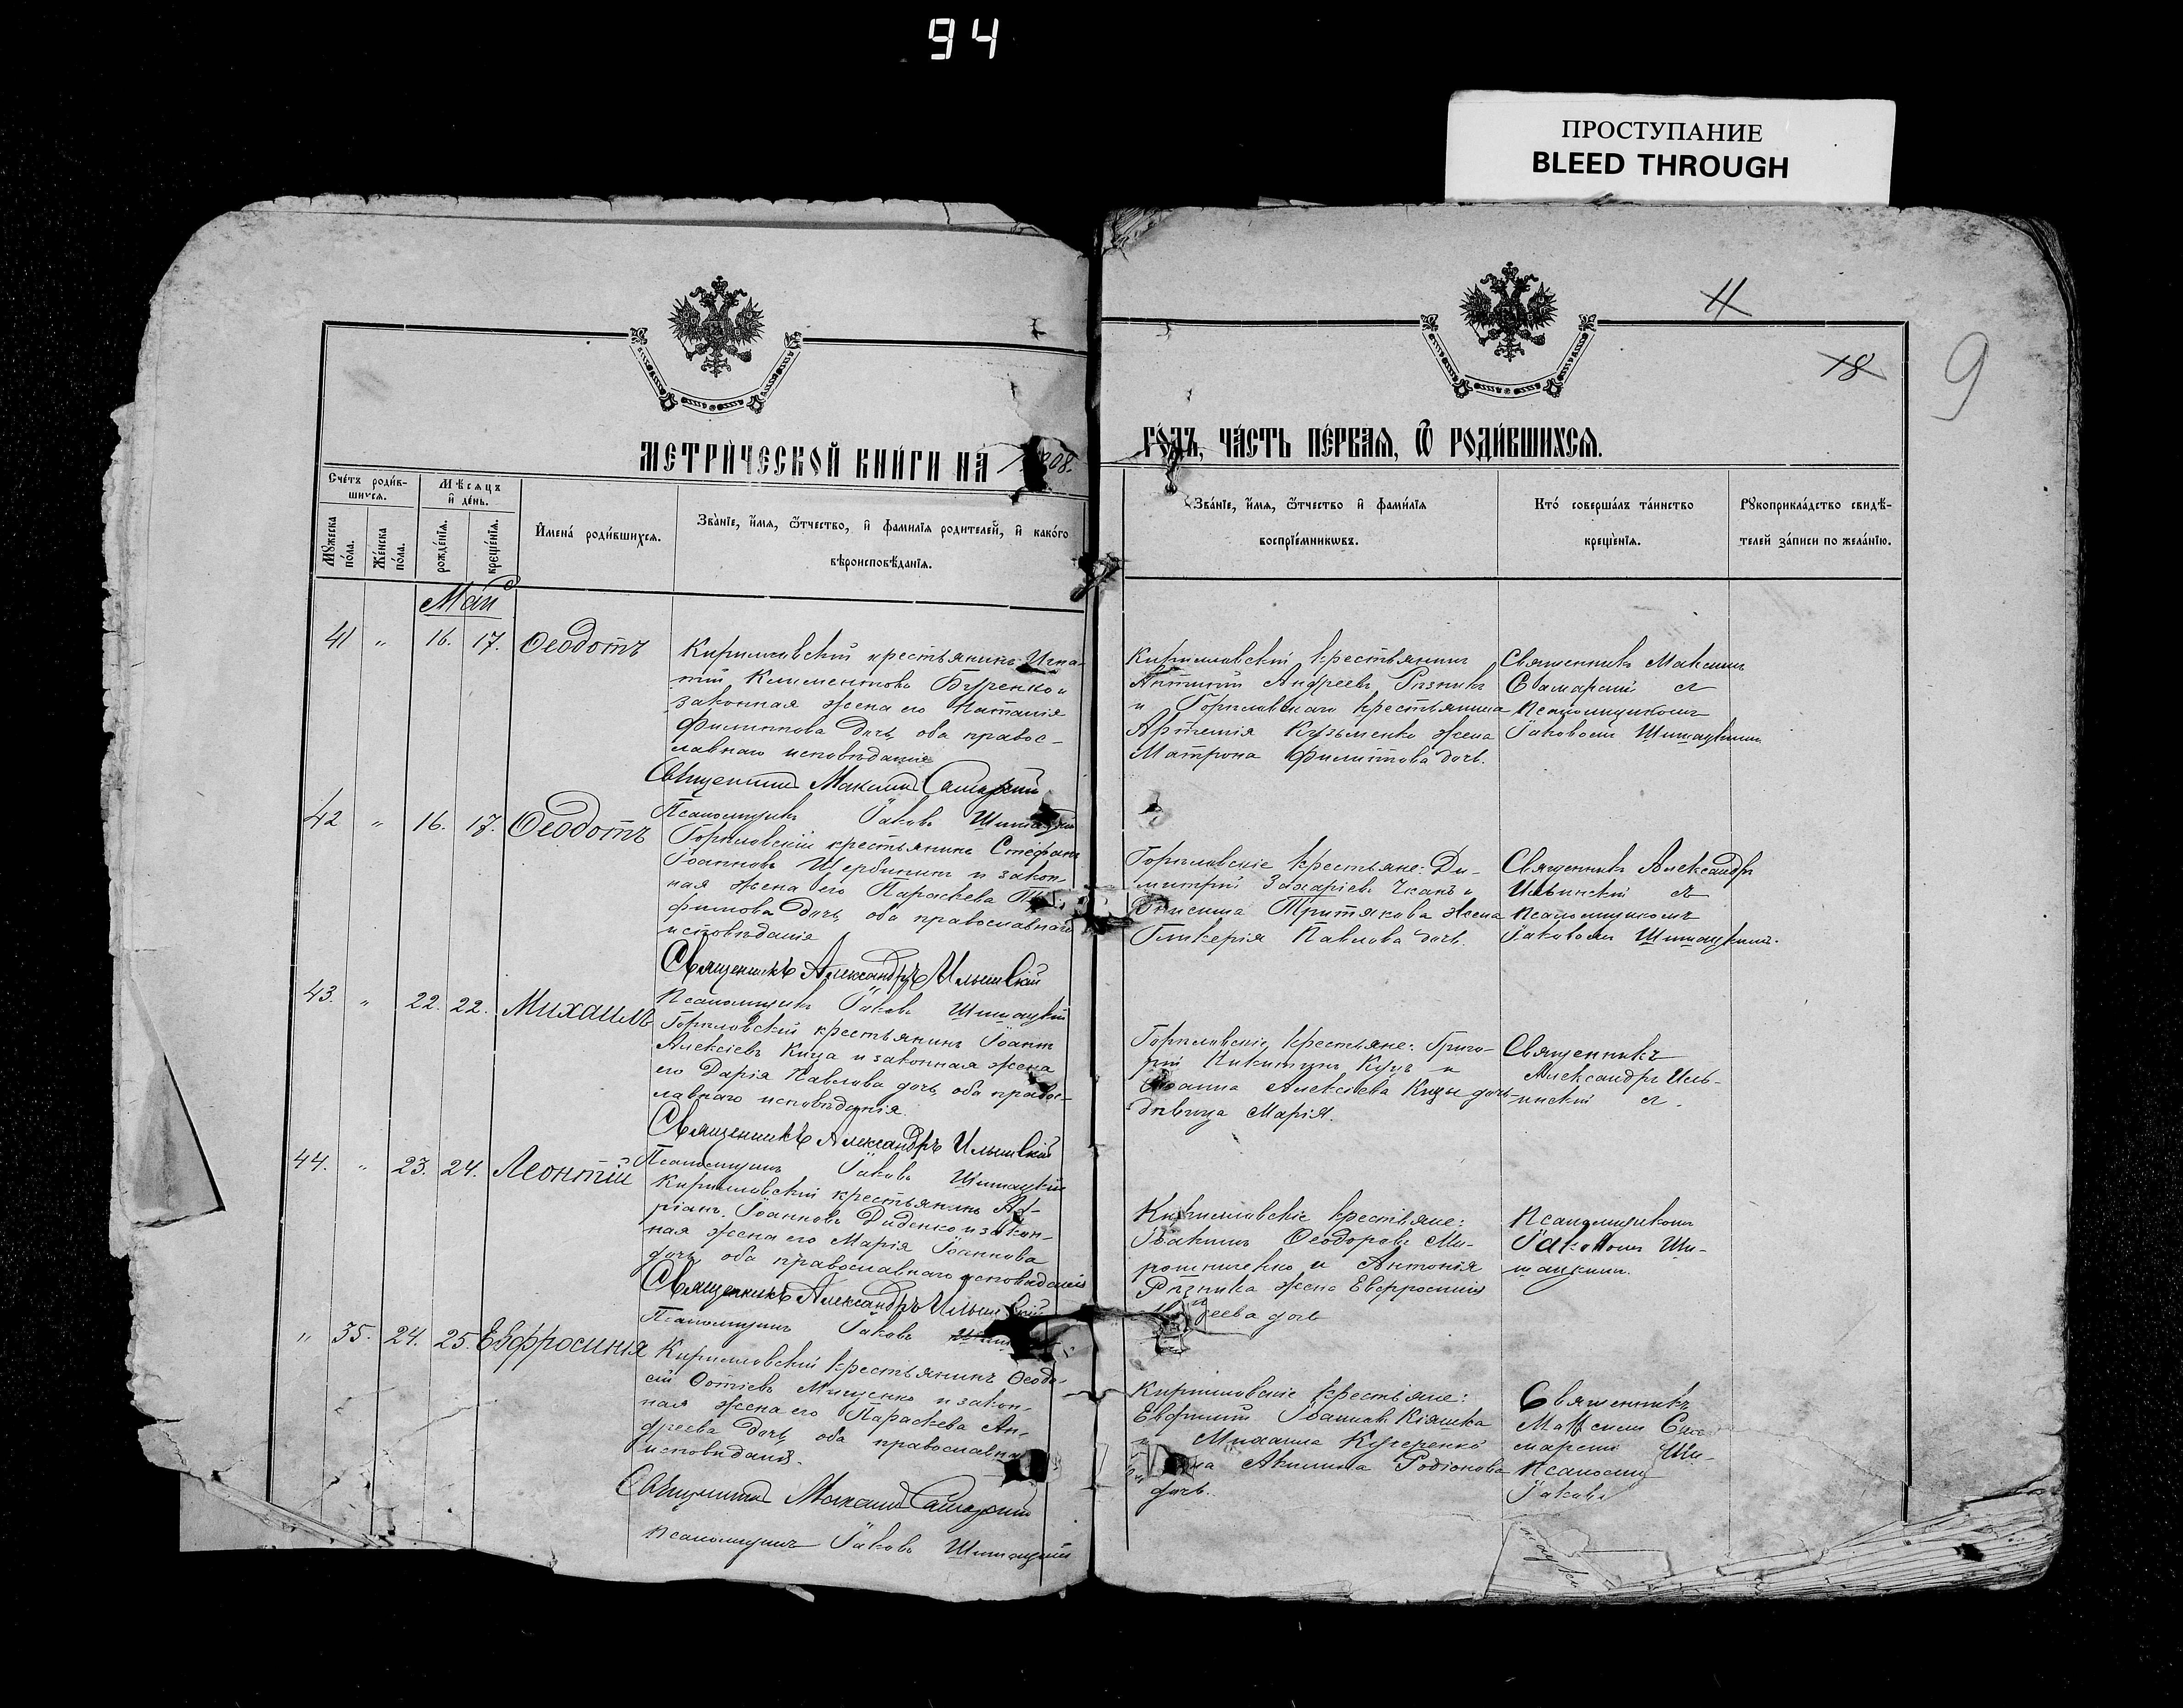 94
ПРОСТУПАНИЕ
BLEED THROUGH
11
18
9
МЕТРИ́ЧЕСКОЙ КНИ́ГИ НА 1908.
ГО́ДЪ, ЧА́СТЬ ПЕ́РВАѦ, Ѡ РОДИ́ВШИХСѦ.
Сче́тъ роди́в-
шихся.
Мꙋ́жеска по́ла.
Же́нска по́ла.
Мѣ́сяцъ
и҆ де́нь.
рожде́нїѧ.
креще́нїѧ.
И҆мена̀ роди́вшихся.
Зва́нїе, и҆́мѧ, ѻ҆́тчество, и҆ фами́лїѧ роди́телей, и҆ како́го
вѣроисповѣ́данїѧ.
Зва́нїе, и҆́мѧ, ѻ҆́тчество и҆ фами́лїѧ
воспрїе́мникѡвъ.
Кто̀ соверша́лъ та́инство
креще́нїѧ.
Рꙋкоприкла́дство свидѣ́-
телей за́писи по жела́нїю.
Май
41 " 16. 17. Ѳеодотъ
Кирилловскій крестьянинъ Игна-
тій Климентовъ Буренко и
законная жена его Наталія
Филиппова дочь, оба правос-
лавнаго исповѣданія
Священникъ Максимъ Самарскій
Псаломщикъ Іаковъ
Кирилловскій крестьянинъ
Андреевъ Рѣзникъ
и Гориловскаго крестьянина
Артемія Кузьменко жена
Матрона Филиппова дочь.
Священникъ Максимъ
Самарскій съ
псаломщикомъ
Іаковомъ Шишацкимъ
42 " 16. 17. Ѳеодотъ
Гориловскій крестьянинъ Стефанъ
Іоанновъ Щербининъ и закон-
ная жена его Параскева
фимова дочь, оба православнаго
исповѣданія
Священникъ Александръ Ильинскій
Псаломщикъ Іаковъ Шишацкій
Гориловскіе крестьяне: Ди-
митрій Захаріевъ и
Онисима Третякова жена
Гликерія Павлова дочь.
Священникъ Александръ
Ильинскій съ
псаломщикомъ
Іаковомъ Шишацкимъ.
43. " 22. 22. Михаилъ
Гориловскій крестьянинъ Іоаннъ
Алексіевъ Куца и законная жена
его Дарія Павлова дочь, оба правос-
лавнаго исповѣданія.
Священникъ Александръ Ильинскій
Псаломщикъ Іаковъ Шишацкій
Гориловскіе крестьяне: Григо-
рій Никитинъ Куцъ и
Іоанна Алексіева Куцы дочь
дѣвица Марія.
Священникъ
Александръ Иль-
инскій съ.
44. " 23. 24. Леонтій
Кирилловскій крестьянинъ Ад-
ріанъ Іоанновъ Диденко и закон-
ная жена его Марія Іоаннова
дочь, оба православнаго исповѣданія
Священникъ Александръ Ильинскій
Псаломщикъ Іаковъ
Кирилловскіе крестьяне:
Іоакимъ Ѳеодоровъ Ми-
рошниченко и Антонія
Рѣзника жена Евфросинія
дочь
псаломщикомъ
Іаковомъ Ши-
шацкимъ.
" 35. 24. 25. Евфросинія
Кирилловскій крестьянинъ Ѳеодо-
сій Фотіевъ Мищенко и закон-
ная жена его Параскева Ан-
дреева дочь, оба православнаго
исповѣданія.
Священникъ Максимъ Самарскій
псаломщикъ Іаковъ Шишацкій
Кирилловскіе крестьяне:
Евфимій Іоанновъ Кіяшка
и Михаила Кучеренко
жена Акилина Родіонова
дочь.
Священникъ
Максимъ Са-
марскій
Іаковъ Ши-
шацкій